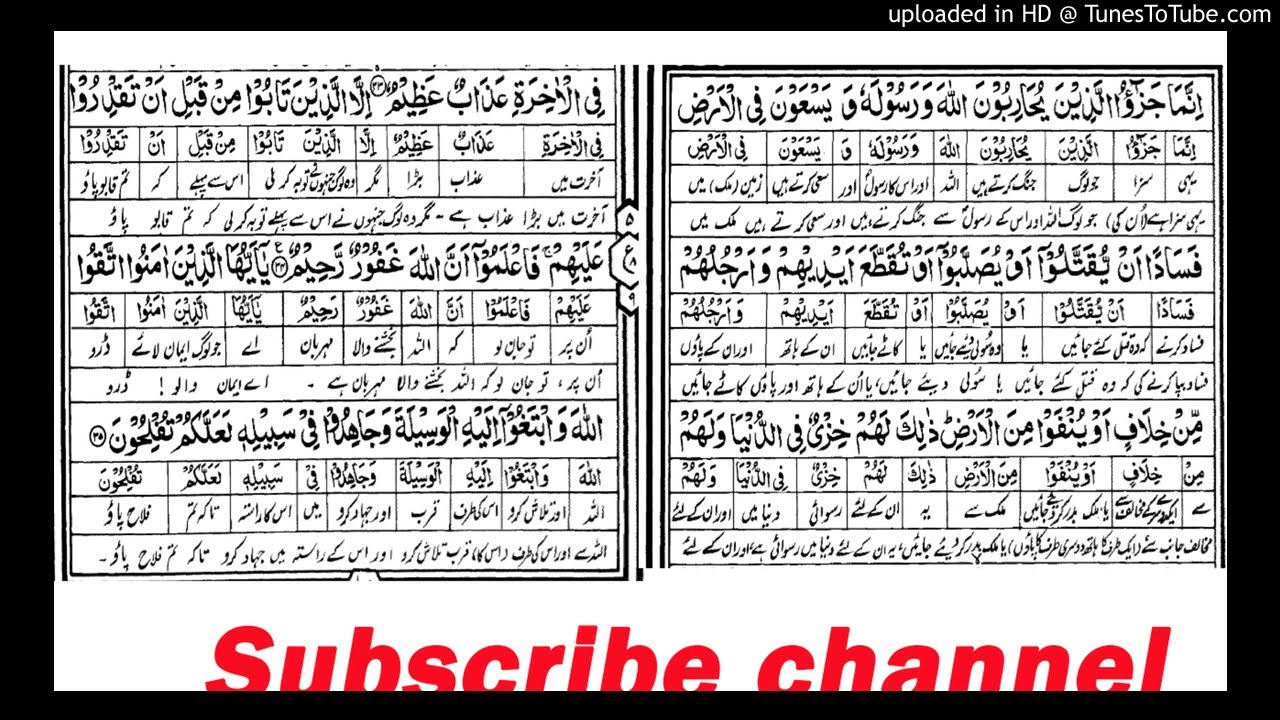 uploaded in HD @ TunesToTube.com
اِنَّمَا جَزٰٓؤُا الَّذِيْنَ يُحَارِبُوْنَ اللّٰهَ وَرَسُوْلَهٗ وَ يَسْعَوْنَ فِي الْاَرْضِ
اِنَّمَا جَزٰٓؤُا الَّذِيْنَ يُحَارِبُوْنَ اللّٰهَ وَرَسُوْلَهٗ وَ يَسْعَوْنَ فِي الْاَرْضِ
یہی سزا جو لوگ جنگ کرتے ہیں اللہ اور اس کا رسول اور سعی کرتے ہیں زمین (ملک) میں
یہی سزا ہے (اُن کی) جو لوگ اللہ اور اس کے رسول سے جنگ کرتے ہیں اور سعی کرتے ہیں ملک میں
فَسَادًا اَنْ يُّقَتَّلُوْٓا اَوْ يُصَلَّبُوْٓا اَوْ تُقَطَّعَ اَيْدِيْهِمْ وَاَرْجُلُهُمْ
فَسَادًا اَنْ يُّقَتَّلُوْٓا اَوْ يُصَلَّبُوْٓا اَوْ تُقَطَّعَ اَيْدِيْهِمْ وَاَرْجُلُهُمْ
فساد کرنے کہ وہ قتل کئے جائیں یا وہ سُولی دیئے جائیں یا کاٹے جائیں ان کے ہاتھ اور ان کے پاؤں
فساد بپا کرنے کی کہ وہ قتل کئے جائیں یا سُولی دیئے جائیں، یا اُن کے ہاتھ اور پاؤں کاٹے جائیں
مِّنْ خِلَافٍ اَوْ يُنْفَوْا مِنَ الْاَرْضِ ذٰلِكَ لَهُمْ خِزْيٌ فِي الدُّنْيَا وَلَهُمْ
مِنْ خِلَافٍ اَوْ يُنْفَوْا مِنَ الْاَرْضِ ذٰلِكَ لَهُمْ خِزْيٌ فِي الدُّنْيَا وَلَهُمْ
سے ملک سے یہ ان کے لئے رسوائی دنیا میں اور ان کے لئے
مخالف جانب سے (ایک طرف کا ہاتھ دوسری طرف کا پاؤں) یا ملک بدر کر دیئے جائیں، یہ ان کے لئے دنیا میں رسوائی ہے، اور ان کے لئے
فِي الْاٰخِرَةِ عَذَابٌ عَظِيْمٌ ۳۳ اِلَّا الَّذِيْنَ تَابُوْا مِنْ قَبْلِ اَنْ تَقْدِرُوْا
فِي الْاٰخِرَةِ عَذَابٌ عَظِيْمٌ اِلَّا الَّذِيْنَ تَابُوْا مِنْ قَبْلِ اَنْ تَقْدِرُوْا
آخرت میں عذاب بڑا مگر وہ لوگ جنہوں نے توبہ کر لی اس سے پہلے کہ تم قابو پاؤ
آخرت میں بڑا عذاب ہے - مگر وہ لوگ جنہوں نے اس سے پہلے توبہ کر لی کہ تم قابو پاؤ
عَلَيْهِمْ فَاعْلَمُوْٓا اَنَّ اللّٰهَ غَفُوْرٌ رَّحِيْمٌ ۳۴ يٰٓاَيُّهَا الَّذِيْنَ اٰمَنُوا اتَّقُوا
عَلَيْهِمْ فَاعْلَمُوْٓا اَنَّ اللّٰهَ غَفُوْرٌ رَحِيْمٌ يٰٓاَيُّهَا الَّذِيْنَ اٰمَنُوا اتَّقُوا
اُن پر تو جان لو کہ اللہ بخشنے والا مہربان اے جو لوگ ایمان لائے ڈرو
اُن پر، تو جان لو کہ اللہ بخشنے والا مہربان ہے - اے ایمان والو! ڈرو
اللّٰهَ وَابْتَغُوْٓا اِلَيْهِ الْوَسِيْلَةَ وَجَاهِدُوْا فِيْ سَبِيْلِهٖ لَعَلَّكُمْ تُفْلِحُوْنَ ۳۵
اللّٰهَ وَابْتَغُوْٓا اِلَيْهِ الْوَسِيْلَةَ وَجَاهِدُوْا فِيْ سَبِيْلِهٖ لَعَلَّكُمْ تُفْلِحُوْنَ
اللہ اور تلاش کرو اس کی طرف قرب اور جہاد کرو میں اس کا راستہ تاکہ تم فلاح پاؤ
اللہ سے اور اس کی طرف (اس کا) قرب تلاش کرو اور اس کے راستہ میں جہاد کرو تاکہ تم فلاح پاؤ -
۵
ع
۹
Subscribe channel